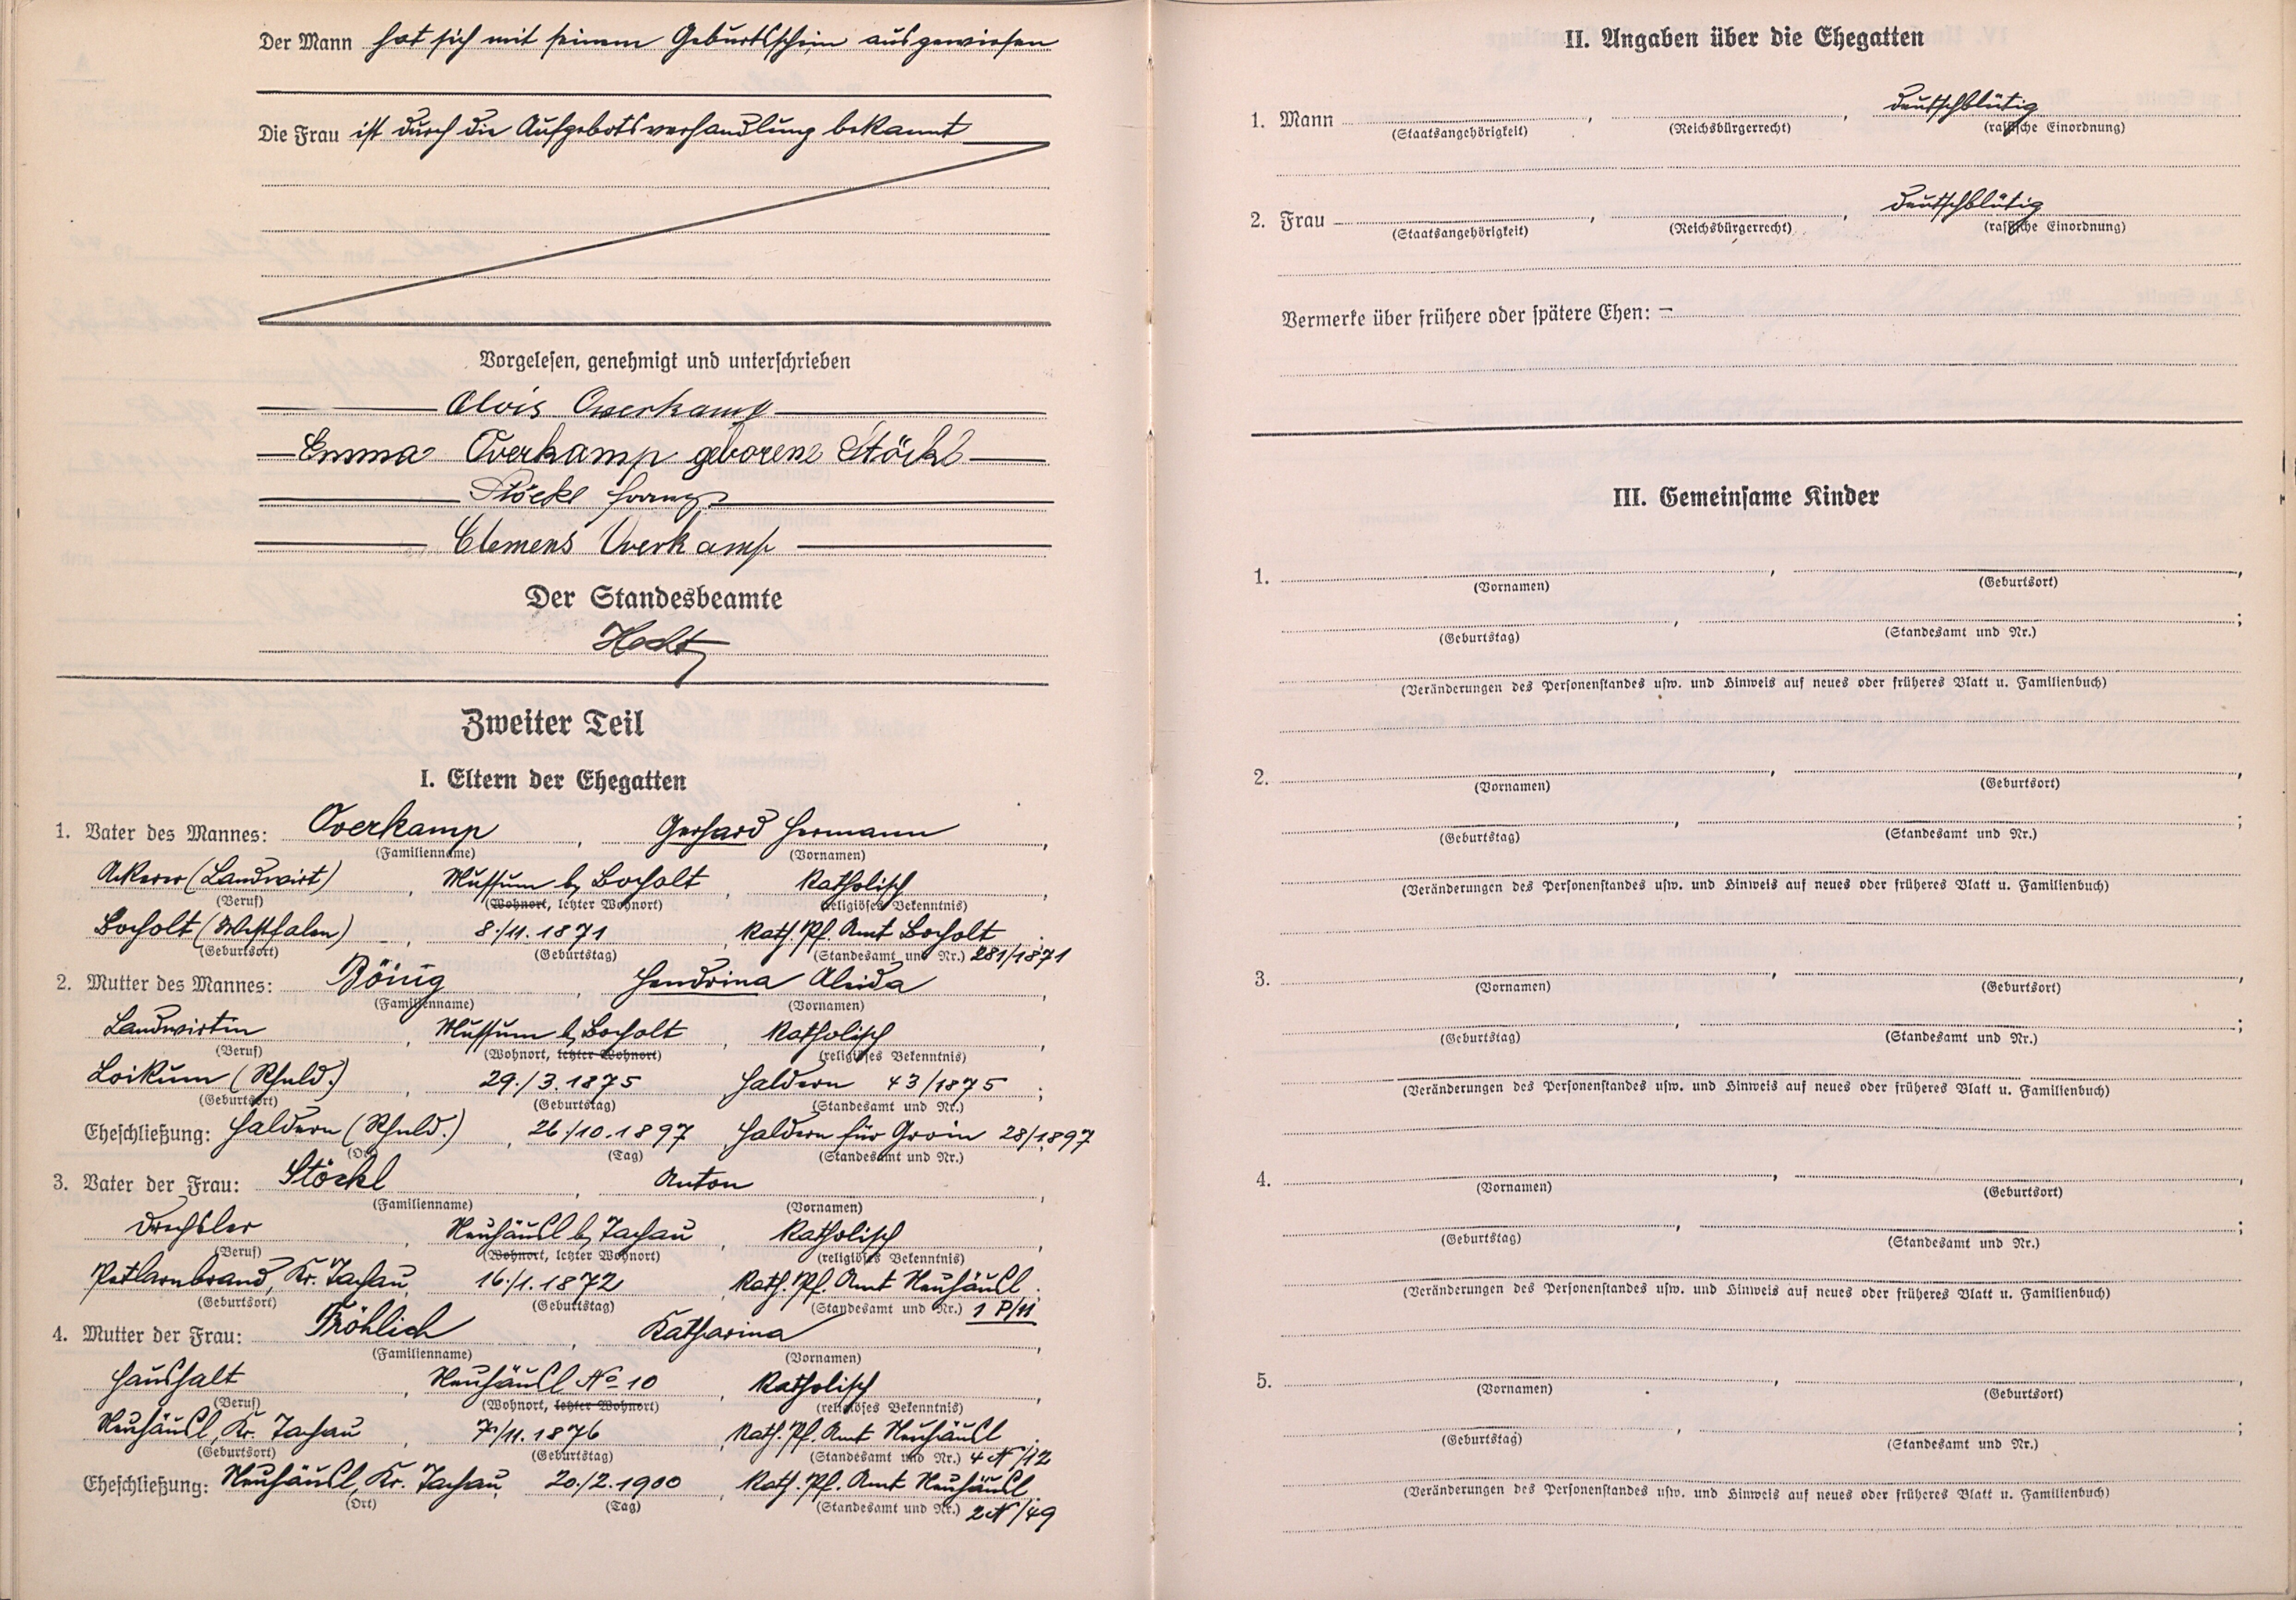 Der Mann hat sich mit seinem Geburtsschein ausgewiesen
Die Frau ist durch die Aufgebotsverhandlung bekannt
Vorgelesen, genehmigt und unterschrieben
Alois Overkamp
Emma Overkamp geborene Stöckl
Stöckl Franz
Clemens Overkamp
Der Standesbeamte
Zweiter Teil
I. Eltern der Ehegatten
1. Vater des Mannes: Overkamp, Gerhard Hermann,
(Familienname) (Vornamen)
Ackerer (Landwirt), Mussum b. Bocholt, Katholisch,
(Beruf) (Wohnort, letzter Wohnort) (religiöses Bekenntnis)
Bocholt (Westfalen), 8./11.1871, Kath. Pf. Amt Bocholt
(Geburtsort) (Geburtstag) (Standesamt und Nr.) 281/1871
2. Mutter des Mannes: Böing, Hendrina Aleida,
(Familienname) (Vornamen)
Landwirtin, Mussum b. Bocholt, Katholisch,
(Beruf) (Wohnort, letzter Wohnort) (religiöses Bekenntnis)
Loikum (Rhnld.), 29./3.1875 Haldern 43/1875;
(Geburtsort) (Geburtstag) (Standesamt und Nr.)
Eheschließung: Haldern (Rhnld.), 26./10.1897, Haldern für Groin 28/1897
(Ort) (Tag) (Standesamt und Nr.)
3. Vater der Frau: Stöckl, Anton,
(Familienname) (Vornamen)
Drechsler, Neuhäusl b. Tachau, Katholisch,
(Beruf) (Wohnort, letzter Wohnort) (religiöses Bekenntnis)
Petlarnbrand, Kr. Tachau, 16./1.1872, Kath. Pf. Amt Neuhäusl;
(Geburtsort) (Geburtstag) (Standesamt und Nr.) 1 P/11
4. Mutter der Frau: Fröhlich, Katharina,
(Familienname) (Vornamen)
Haushalt, Neuhäusl No 10, Katholisch,
(Beruf) (Wohnort, letzter Wohnort) (religiöses Bekenntnis)
Neuhäusl, Kr. Tachau, 7./11.1876, Kath. Pf. Amt Neuhäusl
(Geburtsort) (Geburtstag) (Standesamt und Nr.) 4 N/12
Eheschließung: Neuhäusl, Kr. Tachau, 20./2.1900, Kath. Pf. Amt Neuhäusl
(Ort) (Tag) (Standesamt und Nr.) 2 N/49
II. Angaben über die Ehegatten
1. Mann , , deutschblütig
(Staatsangehörigkeit) (Reichsbürgerrecht) (rassische Einordnung)
2. Frau , , deutschblütig
(Staatsangehörigkeit) (Reichsbürgerrecht) (rassische Einordnung)
Vermerke über frühere oder spätere Ehen: –
III. Gemeinsame Kinder
1. , ,
(Vornamen) (Geburtsort)
, ;
(Geburtstag) (Standesamt und Nr.)
(Veränderungen des Personenstandes usw. und Hinweis auf neues oder früheres Blatt u. Familienbuch)
2. , ,
(Vornamen) (Geburtsort)
, ;
(Geburtstag) (Standesamt und Nr.)
(Veränderungen des Personenstandes usw. und Hinweis auf neues oder früheres Blatt u. Familienbuch)
3. , ,
(Vornamen) (Geburtsort)
, ;
(Geburtstag) (Standesamt und Nr.)
(Veränderungen des Personenstandes usw. und Hinweis auf neues oder früheres Blatt u. Familienbuch)
4. , ,
(Vornamen) (Geburtsort)
, ;
(Geburtstag) (Standesamt und Nr.)
(Veränderungen des Personenstandes usw. und Hinweis auf neues oder früheres Blatt u. Familienbuch)
5. , ,
(Vornamen) (Geburtsort)
, ;
(Geburtstag) (Standesamt und Nr.)
(Veränderungen des Personenstandes usw. und Hinweis auf neues oder früheres Blatt u. Familienbuch)